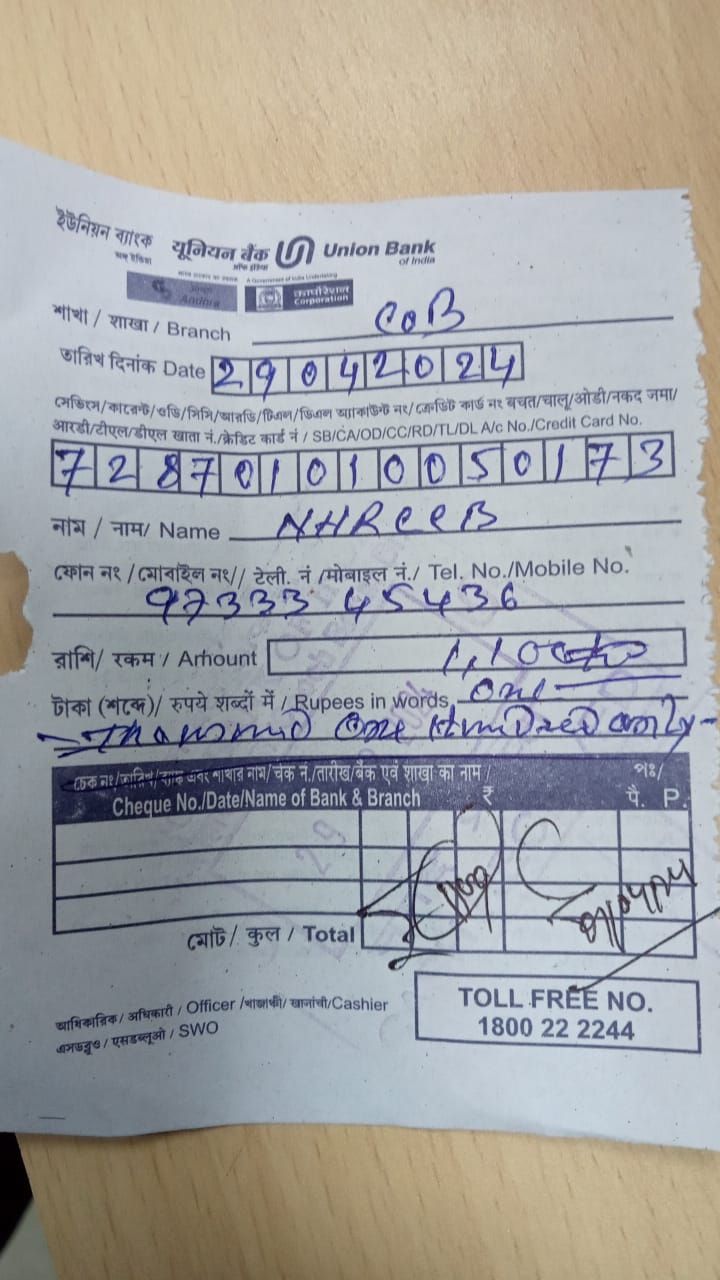 ইউনিয়ন ব্যাংক यूनियन बैंक Union Bank
অফ ইন্ডিয়া ऑफ इंडिया of India
भारत सरकार का उपक्रम A Government of India Undertaking
आन्ध्रा Andhra कारपोरेशन Corporation
শাখা / शाखा / Branch COB
তারিখ दिनांक Date 29042024
সেভিংস/কারেন্ট/ওডি/সিসি/আরডি/টিএল/ডিএল অ্যাকাউন্ট নং/ক্রেডিট কার্ড নং बचत/चालू/ओडी/नकद जमा/
आरडी/टीएल/डीएल खाता नं./क्रेडिट कार्ड नं / SB/CA/OD/CC/RD/TL/DL A/c No./Credit Card No.
728701010050173
নাম / नाम/ Name NHRCCB
ফোন নং /মোবাইল নং// टेली. नं /मोबाइल नं./ Tel. No./Mobile No.
97333 45436
রাশি/ रकम / Amount 1,100
টাকা (শব্দে)/ रुपये शब्दों में / Rupees in words One
Thousand One Hundred only
चेक नं./तारीख/बैंक एवं शाखा का नाम / পঃ/
Cheque No./Date/Name of Bank & Branch ₹ पै. P.
মোট/ कुल / Total
আধিকারিক/ अधिकारी / Officer /খাজাঞ্চী/ खजांची/Cashier
এসডব্লুও / एसडब्लूओ / SWO
TOLL FREE NO.
1800 22 2244